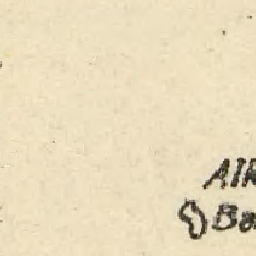 AIR
Ba